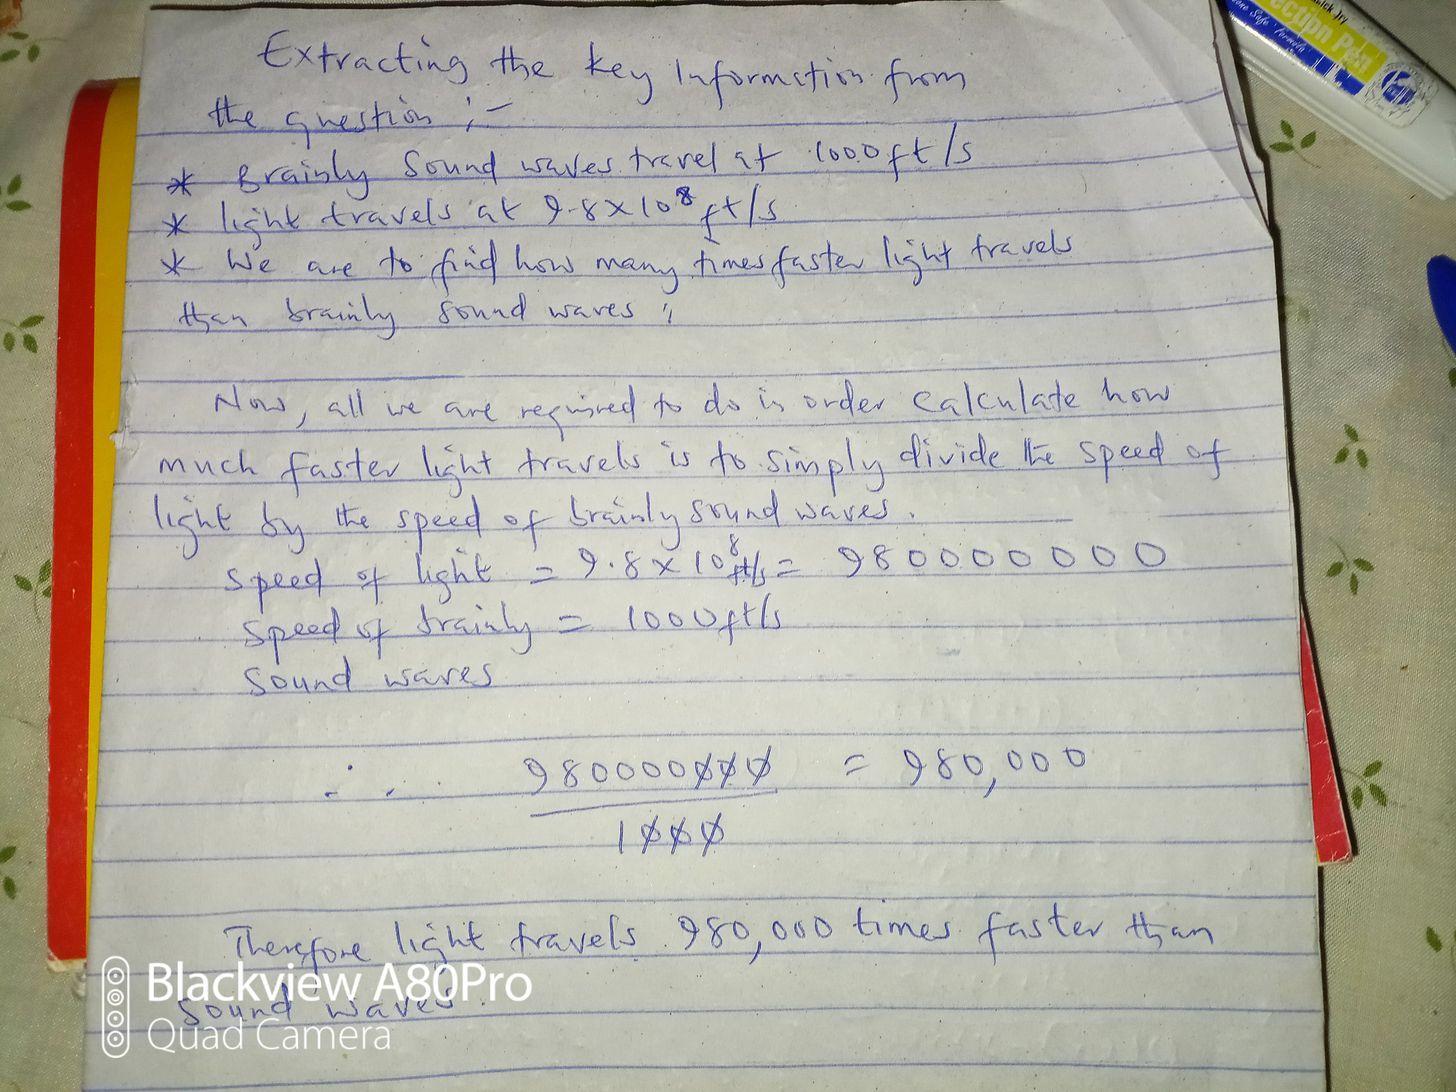 Extracting the key Information from
the question ;-
* Brainly Sound waves travel at 1000 ft/s
* light travels at 9.8×10⁸ ft/s
* We are to find how many times faster light travels
than brainly sound waves ;
Now, all we are required to do in order calculate how
much faster light travels is to simply divide the speed of
light by the speed of brainly sound waves.
Speed of light = 9.8×10⁸ ft/s = 980000000
Speed of brainly = 1000ft/s
Sound waves
∴ 980000000 = 980,000
1000
Therefore light travels 980,000 times faster than
sound waves.
Blackview A80Pro
Quad Camera
ection Pen